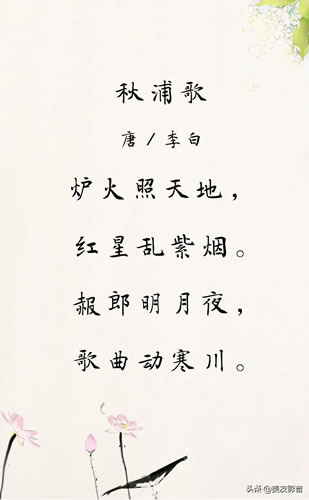 秋浦歌
唐/李白
炉火照天地，
红星乱紫烟。
赧郎明月夜，
歌曲动寒川。
头条@美友影音